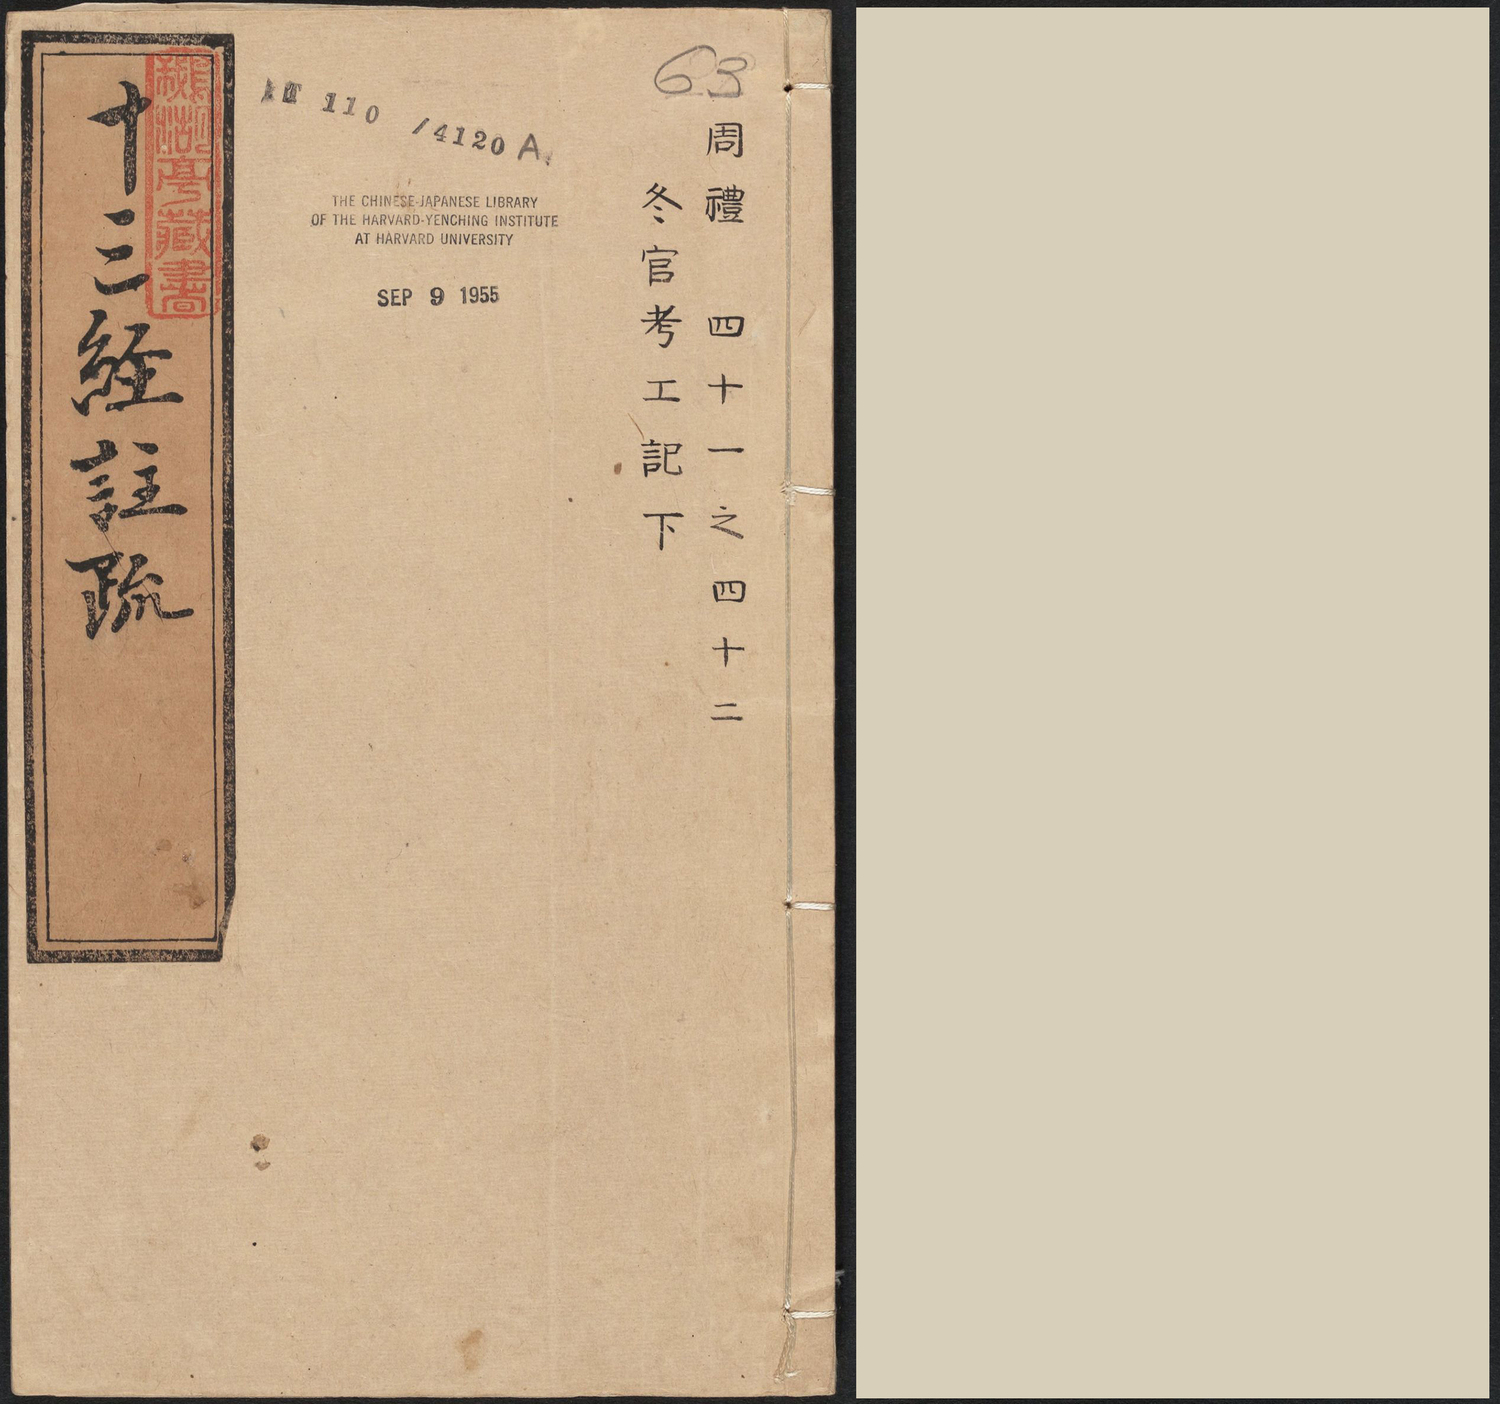 周禮 四十一之四十二
冬官考工記下
63
T 110 /4120 A.
THE CHINESE-JAPANESE LIBRARY
OF THE HARVARD-YENCHING INSTITUTE
AT HARVARD UNIVERSITY
SEP 9 1955
十三経註疏
湖亭藏書